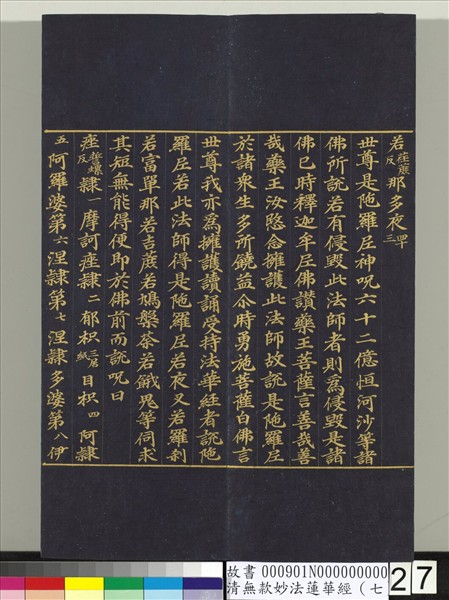 若荏蔗反那多夜四十三
世尊是陁羅尼神呪六十二億恒河沙等諸
佛所說若有侵毀此法師者則為侵毀是諸
佛已時釋迦牟尼佛讚藥王菩薩言善哉善
哉藥王汝愍念擁護此法師故說是陁羅尼
於諸衆生多所饒益尒時勇施菩薩白佛言
世尊我亦為擁護讀誦受持法華經者說陁
羅尼若此法師得是陁羅尼若夜叉若羅剎
若富單那若吉蔗若鳩槃茶若餓鬼等伺求
其短無能得便即於佛前而說呪曰
痤誓螺反隷一摩訶痤隷二郁枳三居紙目枳四阿隷
五阿羅婆第六涅隷第七涅隷多婆第八伊
故書 000901N000000000
清無款妙法蓮華經(七
27